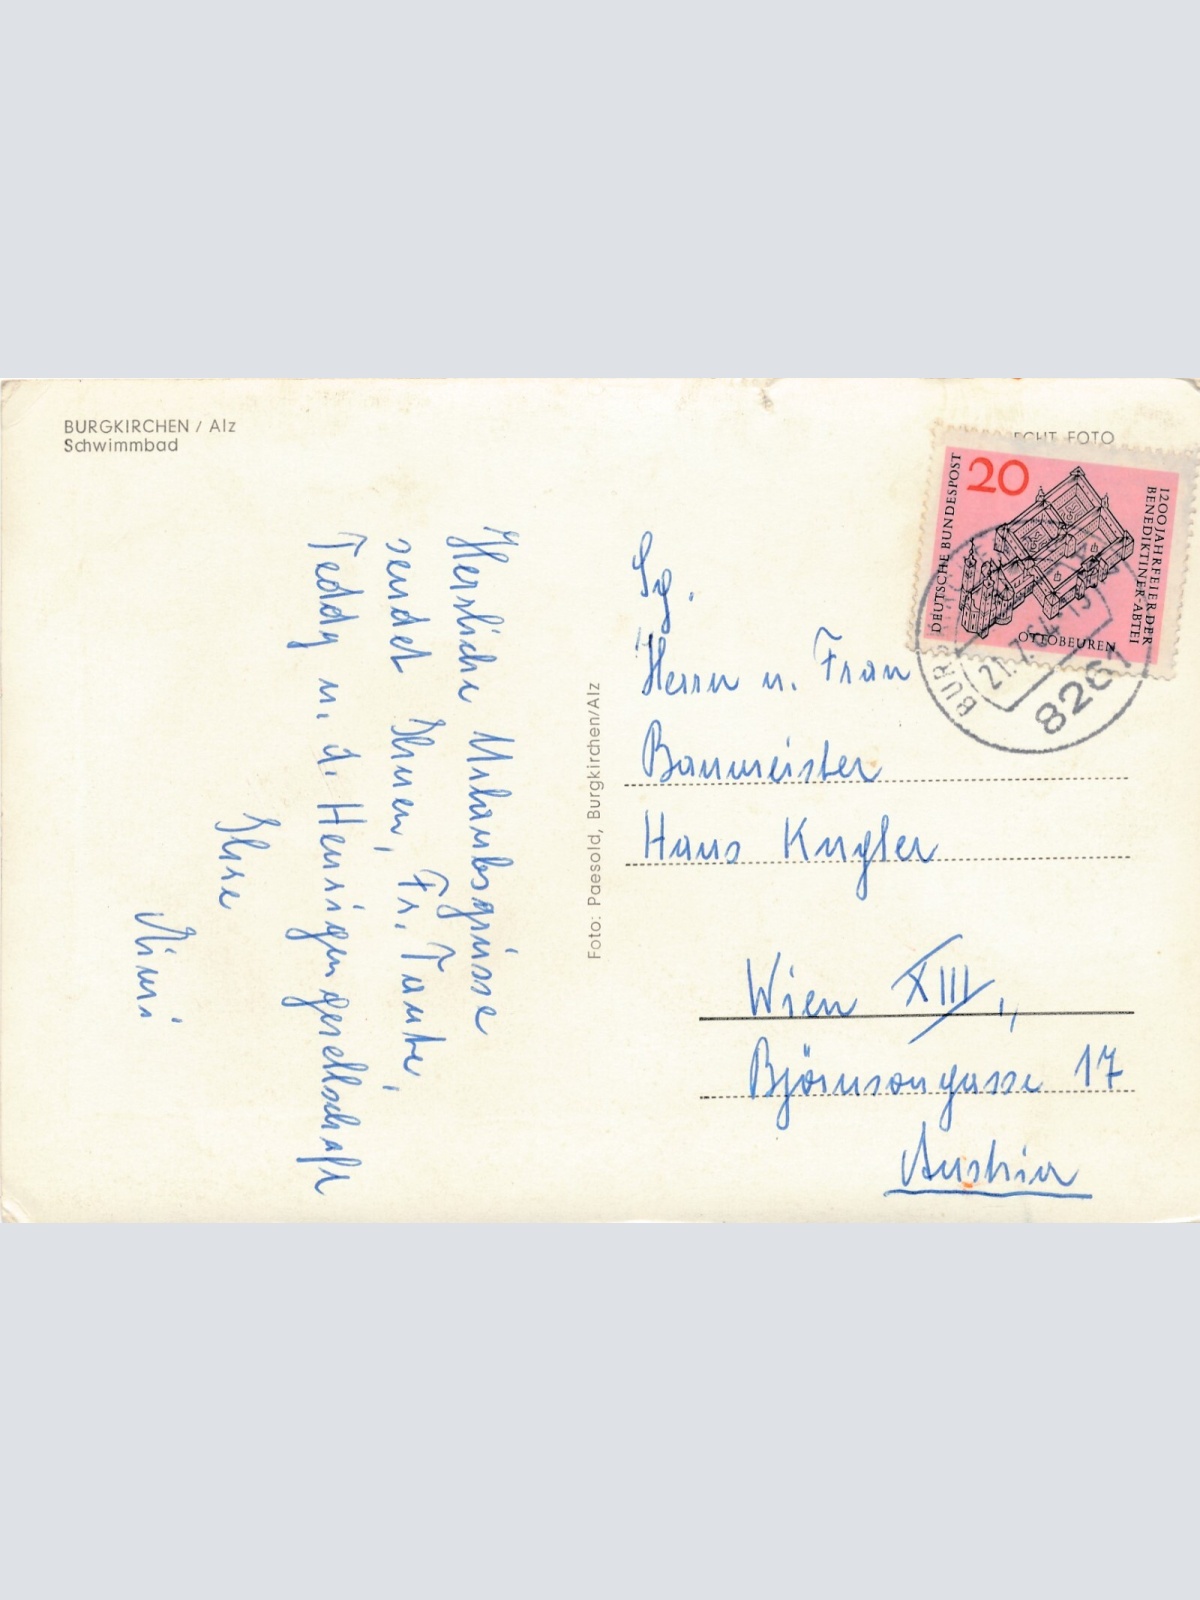 BURGKIRCHEN / Alz
Schwimmbad
Herzliche Urlaubsgrüsse
sendet Ihnen, Fr. Tante,
Teddy u. d. Heurigengesellschaft
Ihre
Mimi
Foto: Paesold, Burgkirchen/Alz
ECHT FOTO
DEUTSCHE BUNDESPOST
20
1200 JAHRFEIER DER
BENEDIKTINER-ABTEI
OTTOBEUREN
21.7.64
8261
Sg.
Herrn u. Frau
Baumeister
Hans Kugler
Wien XIII.,
Björnsongasse 17
Austria